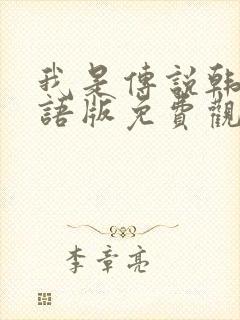 我是傳說韓
語版免費觀
李章亮